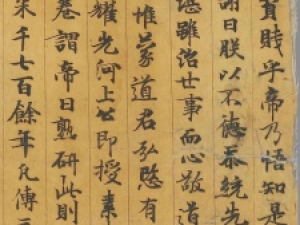 貧賤乎帝乃悟知是
謝曰朕以不德忝統先
堪雖治世事而心敬道
惟蒙道君弘愍有
耀光河上公即授素
卷謂帝曰熟研此則
来千七百餘年凡傳三